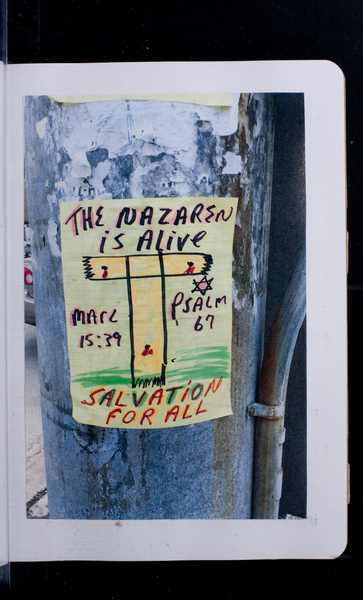 THE NAZAREN
iS ALiVE
MARC
15:39
PSALM
67
SALVATiON
FOR ALL